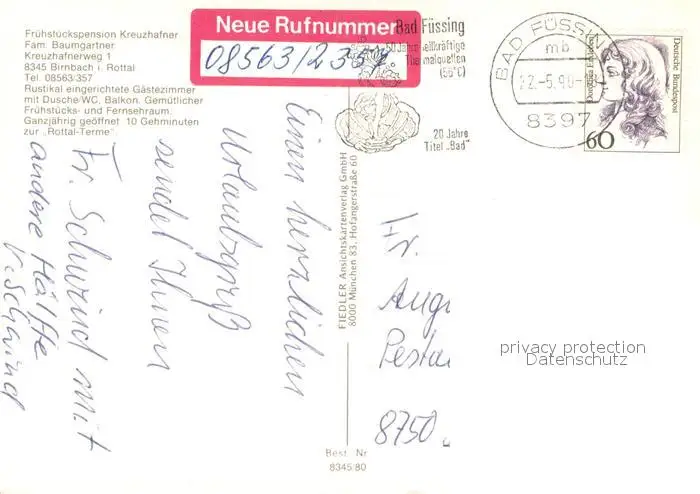 Frühstückspension Kreuzhafner
Fam: Baumgartner
Kreuzhafnerweg 1
8345 Birnbach i. Rottal
Tel. 08563/357
Rustikal eingerichtete Gästezimmer
mit Dusche/WC, Balkon. Gemütlicher
Frühstücks- und Fernsehraum.
Ganzjährig geöffnet 10 Gehminuten
zur „Rottal-Terme"
Neue Rufnummer
08563/2357
Bad Füssing
50 Jahre heilkräftige
Thermalquellen
(56°C)
20 Jahre
Titel „Bad"
BAD FÜSSING
mb
22.-5.90-1
8397
Deutsche Bundespost
Dorothea Erxleben
60
Einen herzlichen
Urlaubsgruß
sendet Ihnen
Fr. Schwind mit
andere Hälfte
V. Schwind
FIEDLER Ansichtskartenverlag GmbH
8000 München 83, Hofangerstraße 60
Fr.
Augu
Pestal
8750
privacy protection
Datenschutz
Best. Nr
8345/80